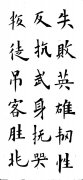 失敗英雄韧性
反抗武身抚哭
叛徒吊客胜兆